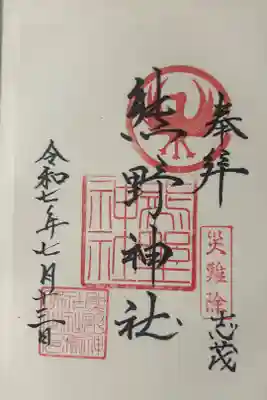 奉拝
災難除
志茂
熊野神社
熊野神社
令和七年七月十三日